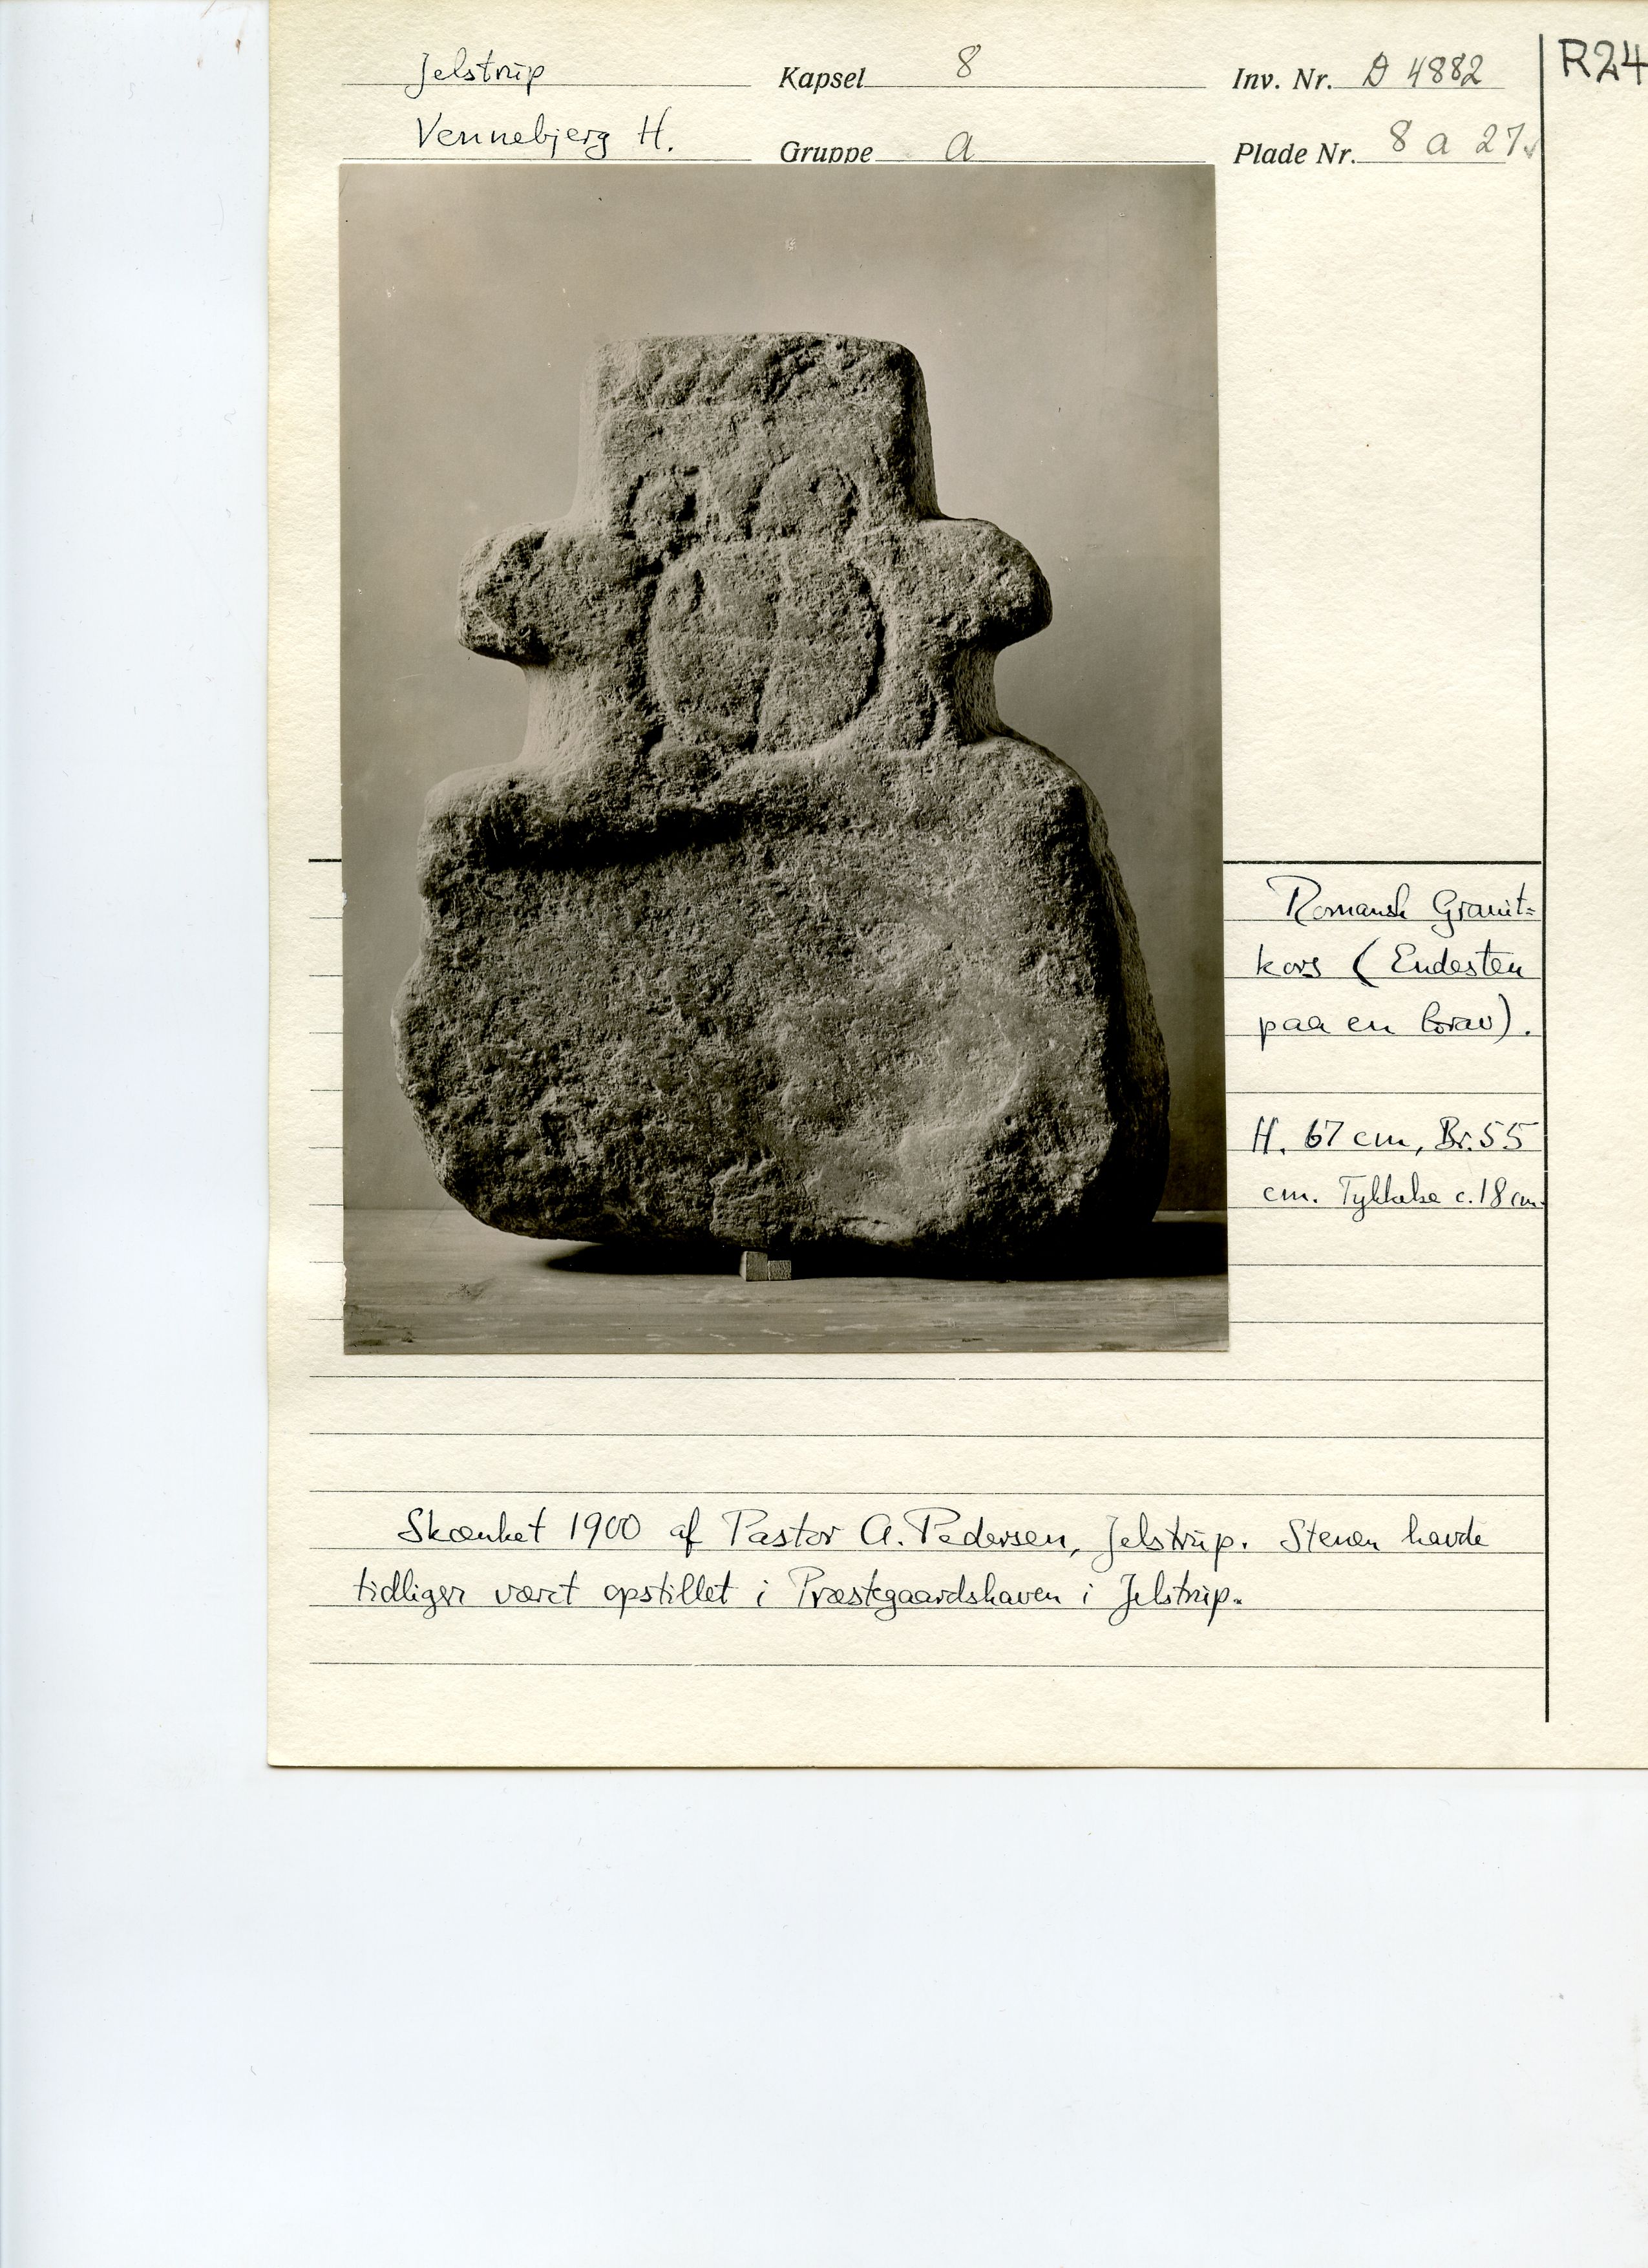 Jelstrup Kapsel 8 Inv. Nr. D 4882 R24
Vennebjerg H. Gruppe a Plade Nr. 8 a 27
Romansk Granit=
kors (Endesten
paa en Grav).
H. 67 cm, Br. 55
cm. Tykkelse c. 18 cm.
Skænket 1900 af Pastor A. Pedersen, Jelstrup. Stenen havde
tidligere været opstillet i Præstegaardshaven i Jelstrup.